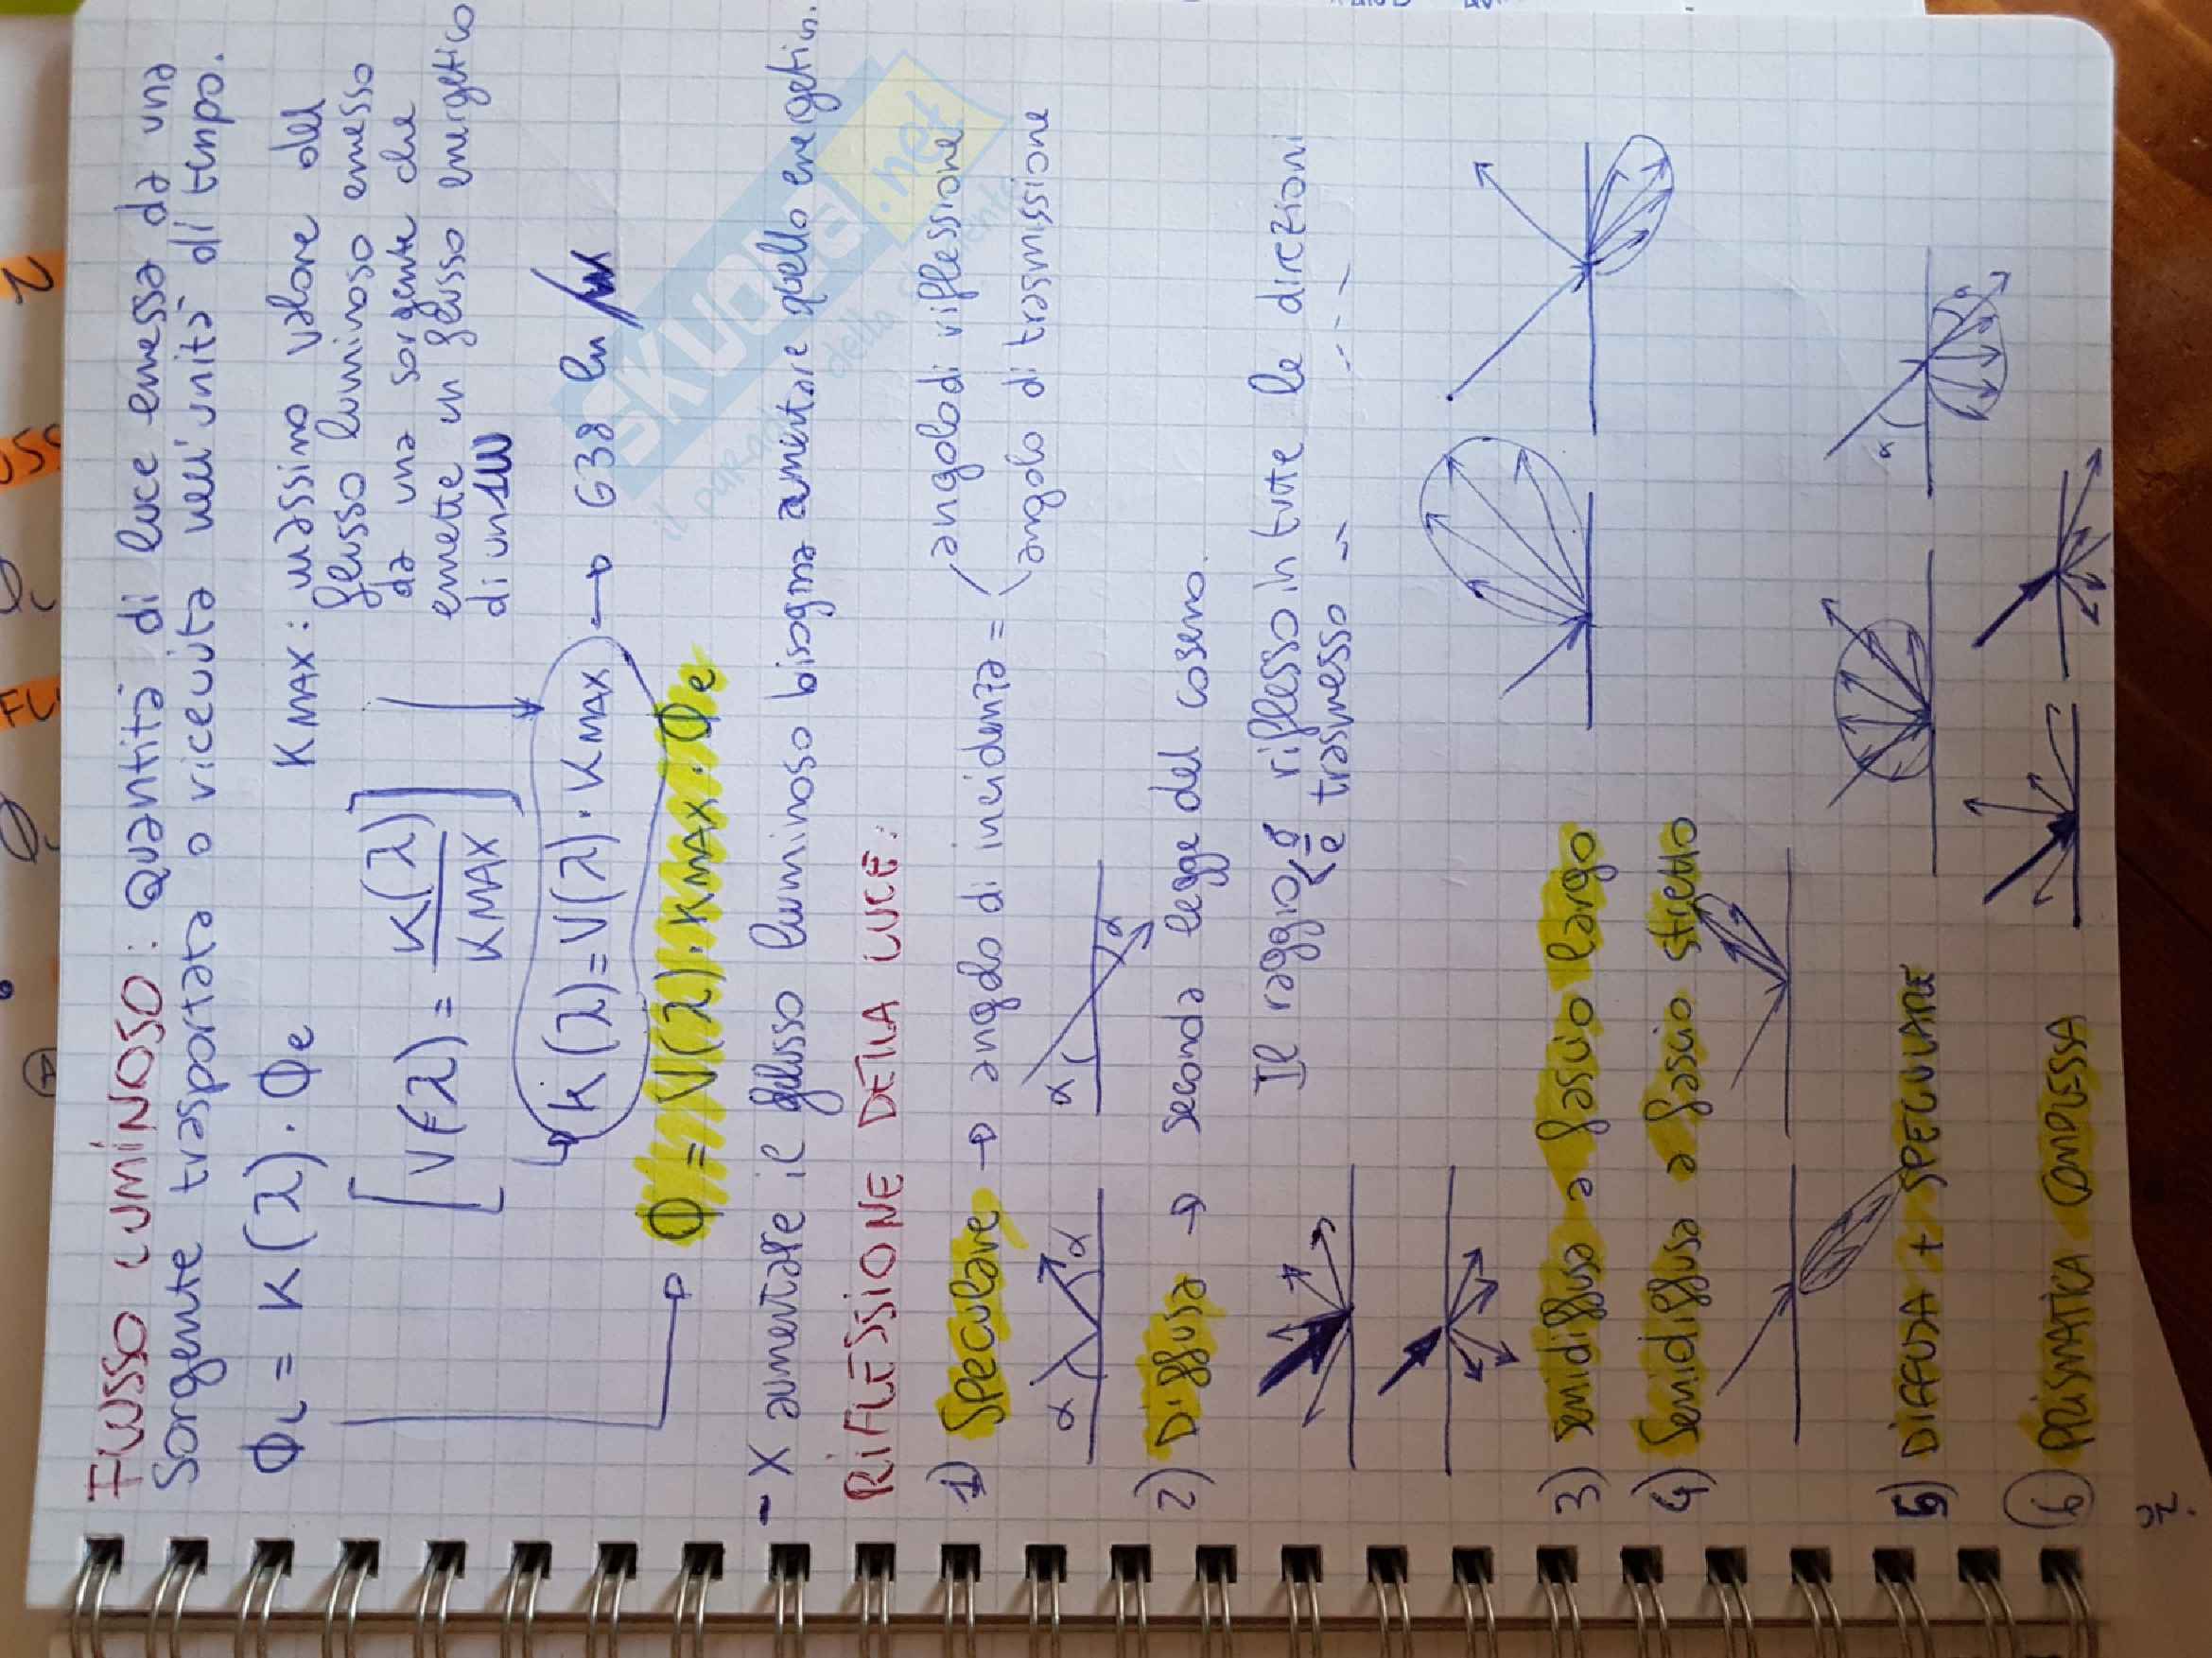 FLUSSO LUMINOSO: Quantità di luce emessa da una
sorgente trasportata o ricevuta nell'unità di tempo.
ΦL = K(λ) · Φe
KMAX: massimo valore del
flusso luminoso emesso
da una sorgente che
emette un flusso energetico
di un 1W
[V(λ) = K(λ) / KMAX]
K(λ) = V(λ) · KMAX → 638 lm /
Φ = V(λ) · KMAX · Φe
- X aumentare il flusso luminoso bisogna aumentare quello energetico.
RIFLESSIONE DELLA LUCE:
1) Speculare → angolo di incidenza = angolo di riflessione
angolo di trasmissione
α α α α
2) Diffusa → seconda legge del coseno.
Il raggio è riflesso in tutte le direzioni
è trasmesso
3) semidiffusa a fascio largo
4) Semidiffusa a fascio stretto
5) DIFFUSA + SPECULARE
α α
6) PRISMATICA COMPLESSA
SKUOLA.net
il paradiso dello studente